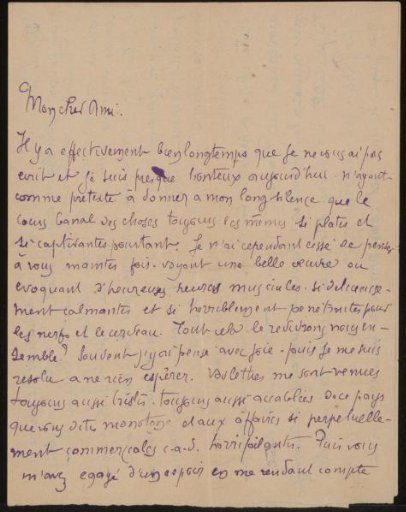 Mon cher Ami.
Il y a effectivement bien longtemps que je ne vous ai pas
écrit et je suis presque honteux aujourd'hui n'ayant
comme prétexte à donner a mon long silence que le
cours banal des choses toujours les mêmes si plates et
si captivantes pourtant. Je n'ai cependant cessé de penser
à vous maintes fois. voyant une belle œuvre ou
evoquant d'heureuses heures musicales. si delicieuse-
ment calmantes et si horriblement pénétrantes pour
les nerfs et le cerveau. Tout cela le redirons nous en-
semble? Souvent j'y ai pensé avec joie - puis je me suis
resolu a ne rien espérer. Vos lettres me sont venues
toujours aussi tristes. toujours aussi accablées de ce pays
que vous dites monotone et aux affaires si perpetuelle-
ment commerciales c.a.d. horripilantes. Puis vous
m'avez egayé d'un espoir en me rendant compte